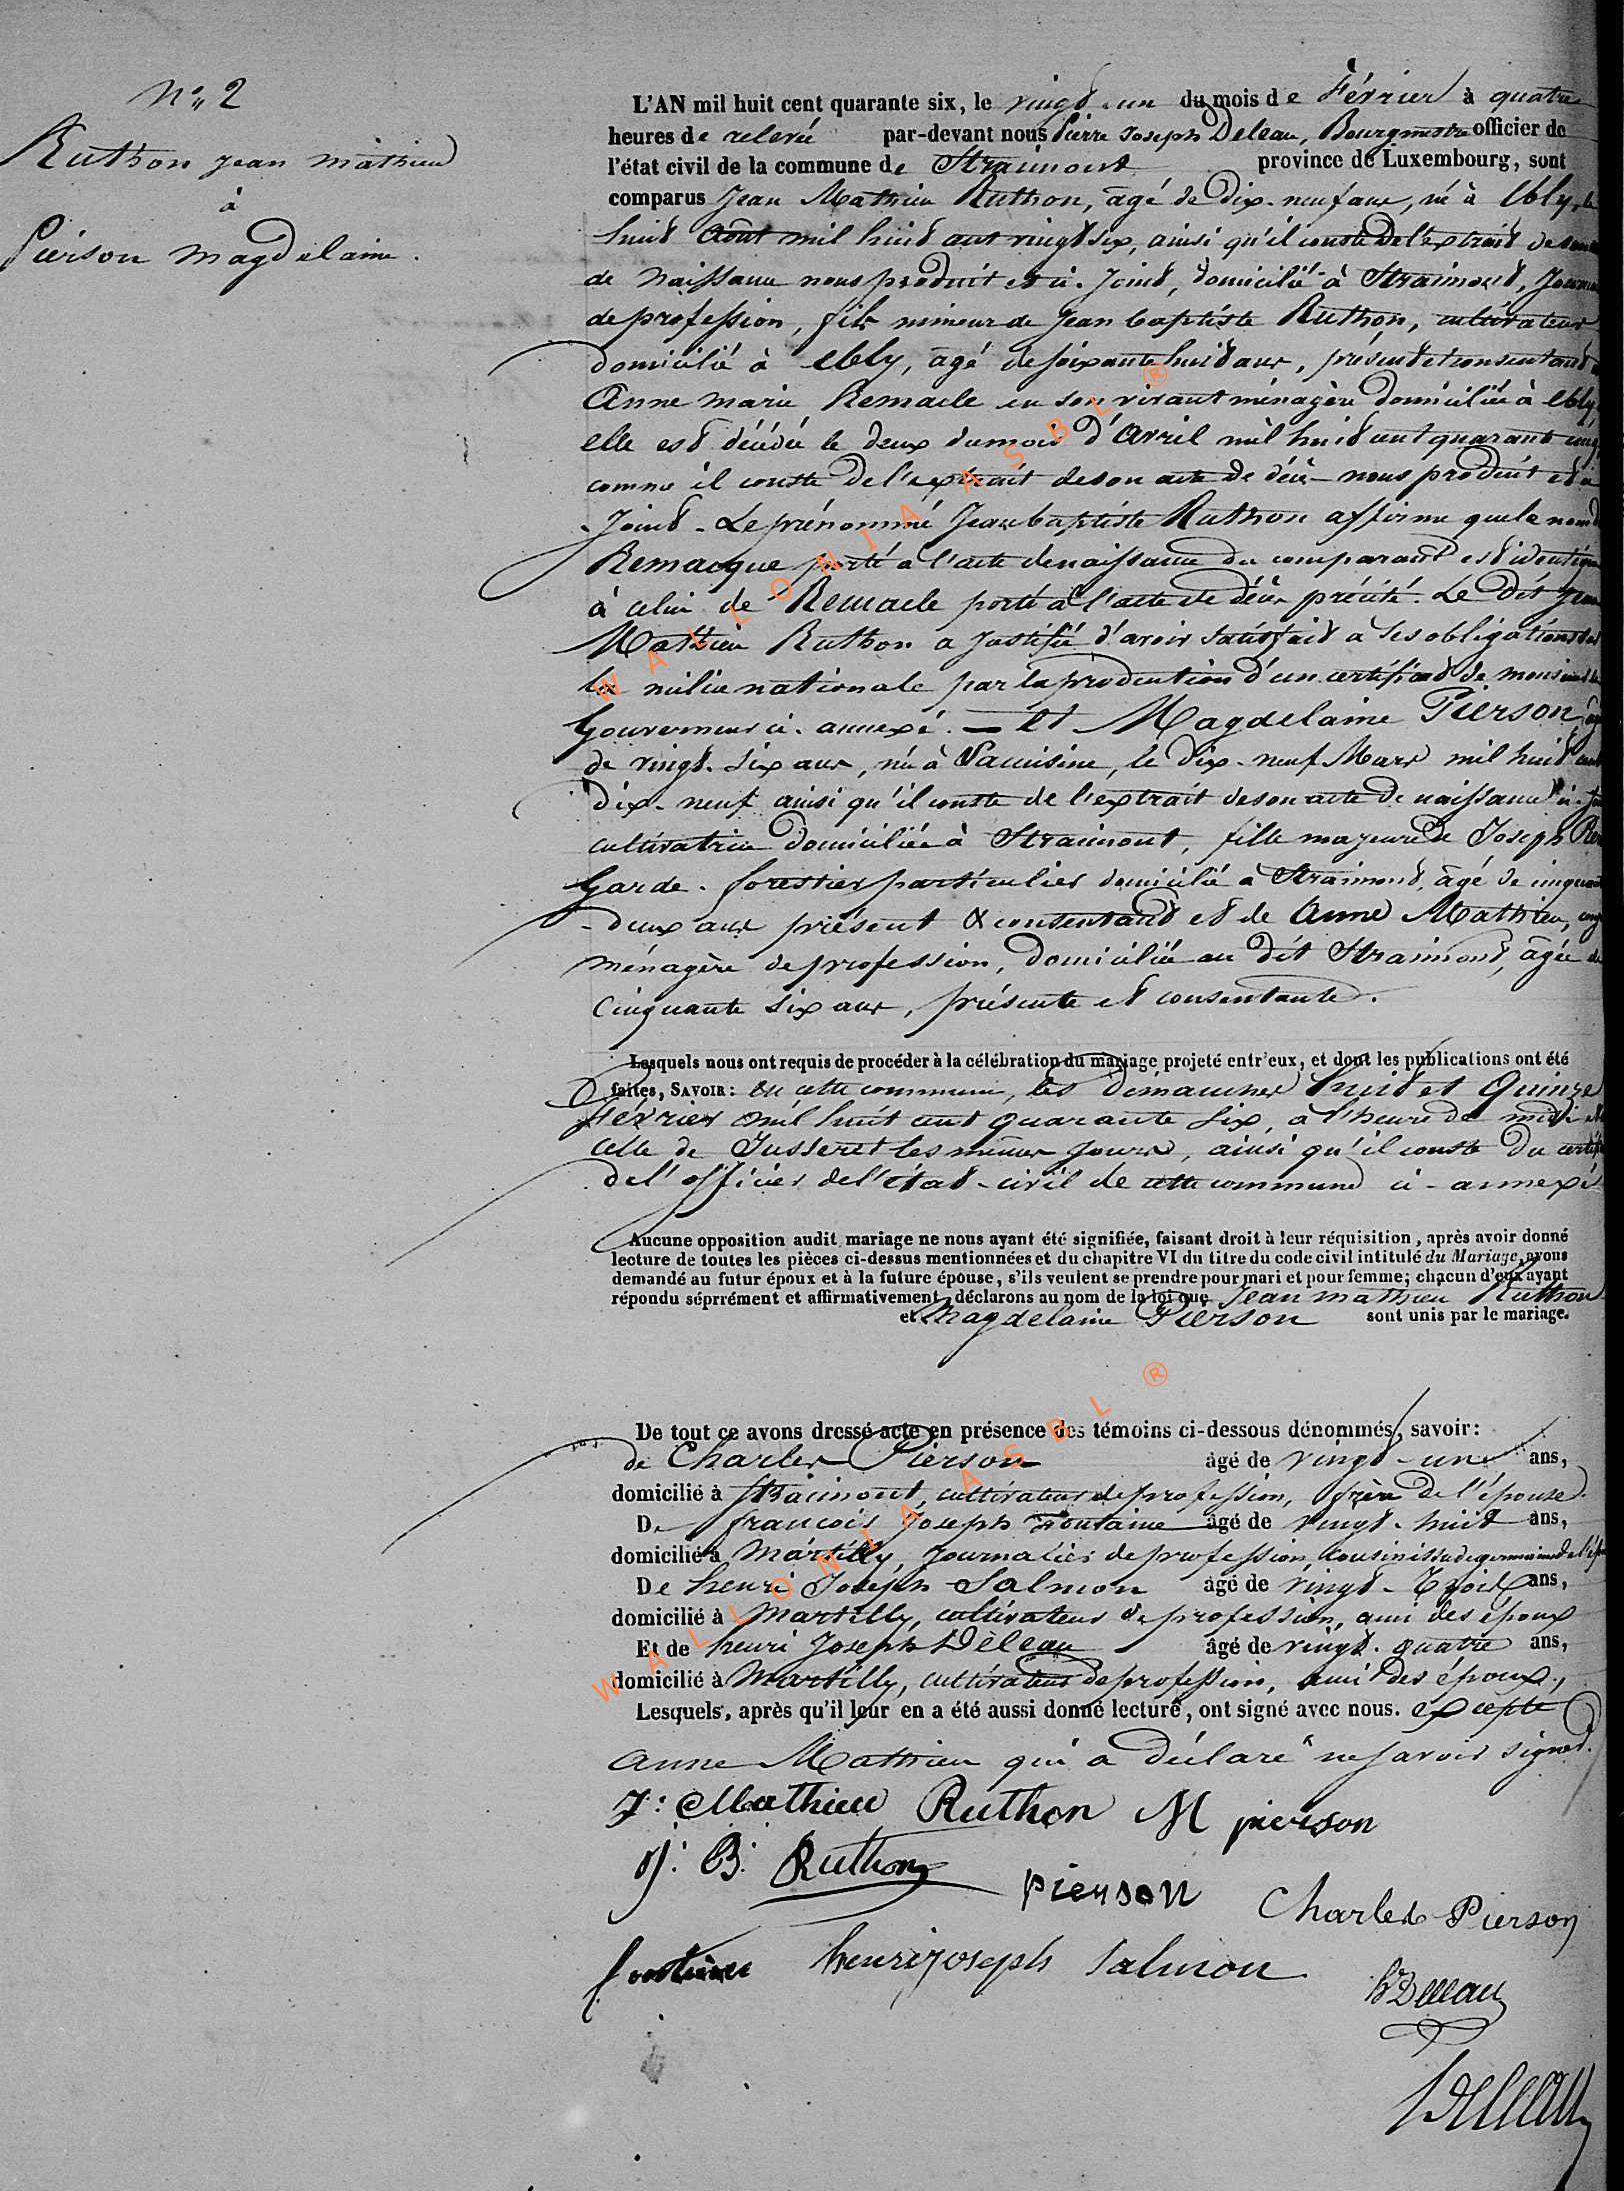 N° 2
Ruthon Jean Mathieu
à
Pierson Magdelaine.
L'AN mil huit cent quarante six, le vingt un du mois de Février à quatre
heures de relevée par-devant nous Pierre Joseph Deleau, Bourgmestre officier de
l'état civil de la commune de Straimont province de Luxembourg, sont
comparus Jean Mathieu Ruthon, âgé de dix-neuf ans, né à Ebly, le
huit Août mil huit cent vingt six, ainsi qu'il conste de l'extrait de son
de naissance nous produit et ci-joint, domicilié à Straimont,
de profession, fils mineur de Jean baptiste Ruthon, cultivateur
domicilié à Ebly, âgé de soixante huit ans, présent et consentant
Anne Marie Remacle en son vivant ménagère domiciliée à Ebly,
elle est décédée le deux du mois d'Avril mil huit cent quarante cinq
comme il conste de l'extrait de son acte de décès nous produit et ci
-Joint - Le prénommé Jean baptiste Ruthon affirme que le nom
Remacque porté à l'acte de naissance du comparant est identique
à celui de Remacle porté à l'acte de décès précité. Le dit Jean
Mathieu Ruthon a justifié d'avoir satisfait à ses obligations
la milice nationale par la production d'un certificat de monsieur le
Gouverneur ci-annexé. — et Magdelaine Pierson, âgé
de vingt-six ans, née à Vaucisine, le dix-neuf Mars mil huit cent
dix-neuf ainsi qu'il conste de l'extrait de son acte de naissance ci-
cultivatrice domiciliée à Straimont, fille majeure de Joseph
Garde-forestier particulier domicilié à Straimont, âgé de cinquante
-deux ans présent & consentant et de Anne Mathieu,
ménagère de profession, domiciliée au dit Straimont, âgée de
cinquante six ans, présente et consentante.
Lesquels nous ont requis de procéder à la célébration du mariage projeté entr'eux, et dont les publications ont été
faites, SAVOIR: en cette commune, les dimanches huit et Quinze
février mil huit cent quarante six, à l'heure de midi et
celle de Jusseret les mêmes jours, ainsi qu'il conste du certifi
de l'officier de l'état-civil de cette commune ci-annexé
Aucune opposition audit mariage ne nous ayant été signifiée, faisant droit à leur réquisition, après avoir donné
lecture de toutes les pièces ci-dessus mentionnées et du chapitre VI du titre du code civil intitulé du Mariage, avons
demandé au futur époux et à la future épouse, s'ils veulent se prendre pour mari et pour femme; chacun d'eux ayant
répondu séprrément et affirmativement, déclarons au nom de la loi que Jean mathieu Ruthon
et Magdelaine Pierson sont unis par le mariage.
De tout ce avons dressé acte en présence des témoins ci-dessous dénommés, savoir:
de Charles Pierson âgé de vingt-un ans,
domicilié à Straimont, cultivateur de profession, frère de l'épouse.
De francois Joseph Fontaine âgé de vingt-huit ans,
domicilié à Martilly, Journalier de profession, cousin issu de germain de l'ép
De henri Joseph Salmon âgé de vingt-trois ans,
domicilié à Martilly, cultivateur de profession, ami des époux
Et de henri Joseph Deleau âgé de vingt-quatre ans,
domicilié à Martilly, cultivateur de profession, ami des époux,
Lesquels, après qu'il leur en a été aussi donné lecture, ont signé avec nous. excepté
Anne Mathieu qui a déclaré ne savoir signer.
J: Mathieu Ruthon M pierson
J: B: Ruthon pierson Charles Pierson
fontaine henri joseph salmon
hDeleau
Deleau
WALLONIA ASBL ®
WALLONIA ASBL ®